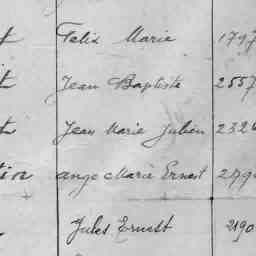 Felix Marie 1797
Jean Baptiste 2557
Jean Marie Julien 2326
ange Marie Ernest
Jules Ernest 2190